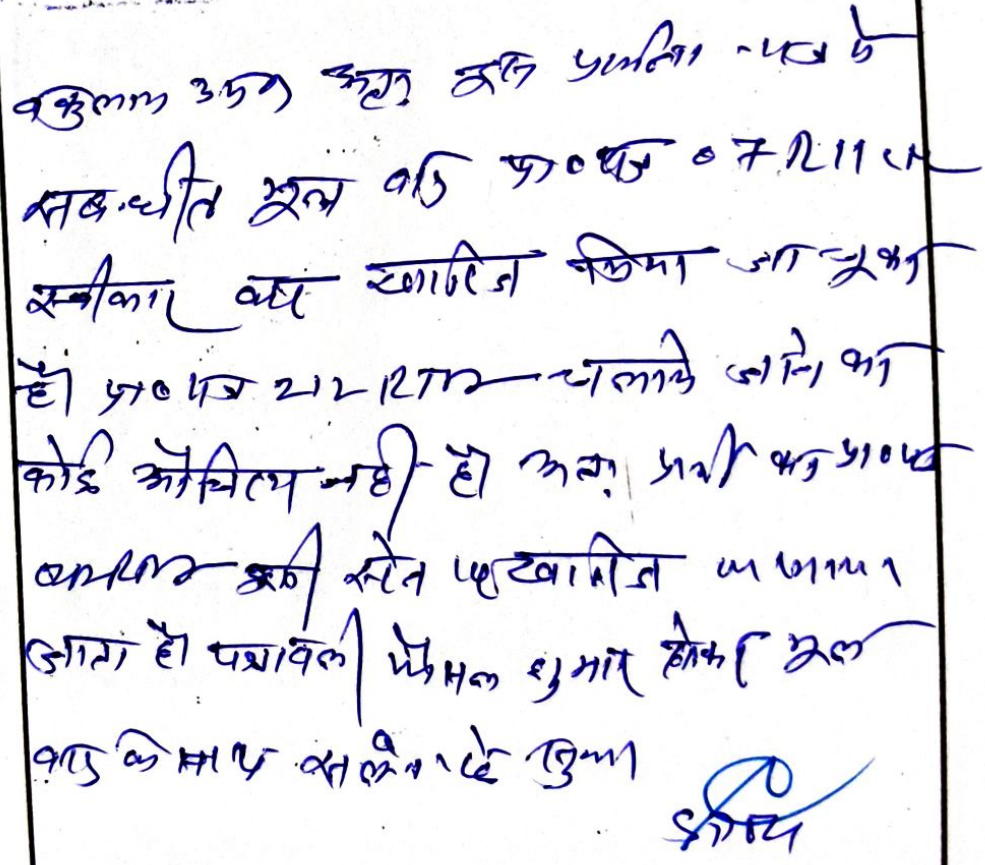 वकुलाय उभय बहस सुनी प्रार्थना-पत्र से
सबन्धीत मूल वाद प्रा०पत्र 07R11 का
स्वीकार कर खारिज किया जा चुका
है। प्रा०पत्र 212 RTA चलाये जाने का
कोई औचित्य नही है। अतः प्रार्थी का प्रा०पत्र
इसी स्टेज पर खारिज किया
जाता है। पत्रावली फैसल शुमार होकर मूल
वाद के साथ सलंग्न रहे